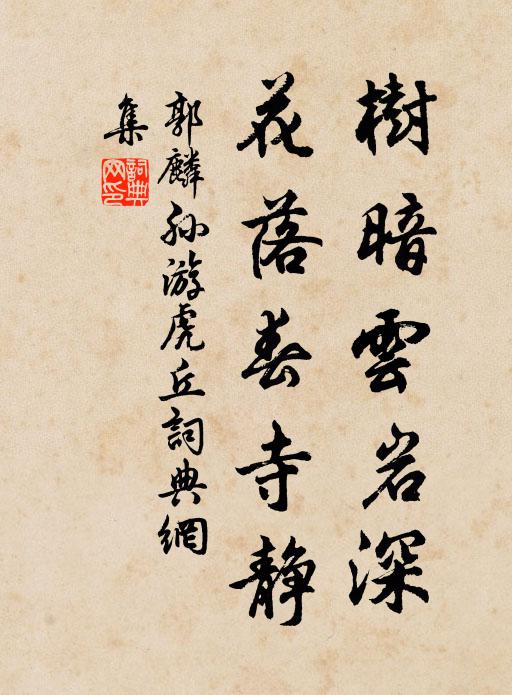 樹暗雲岩深
花落春寺静
郭麟孙游虎丘詞典網
集
詞典网印